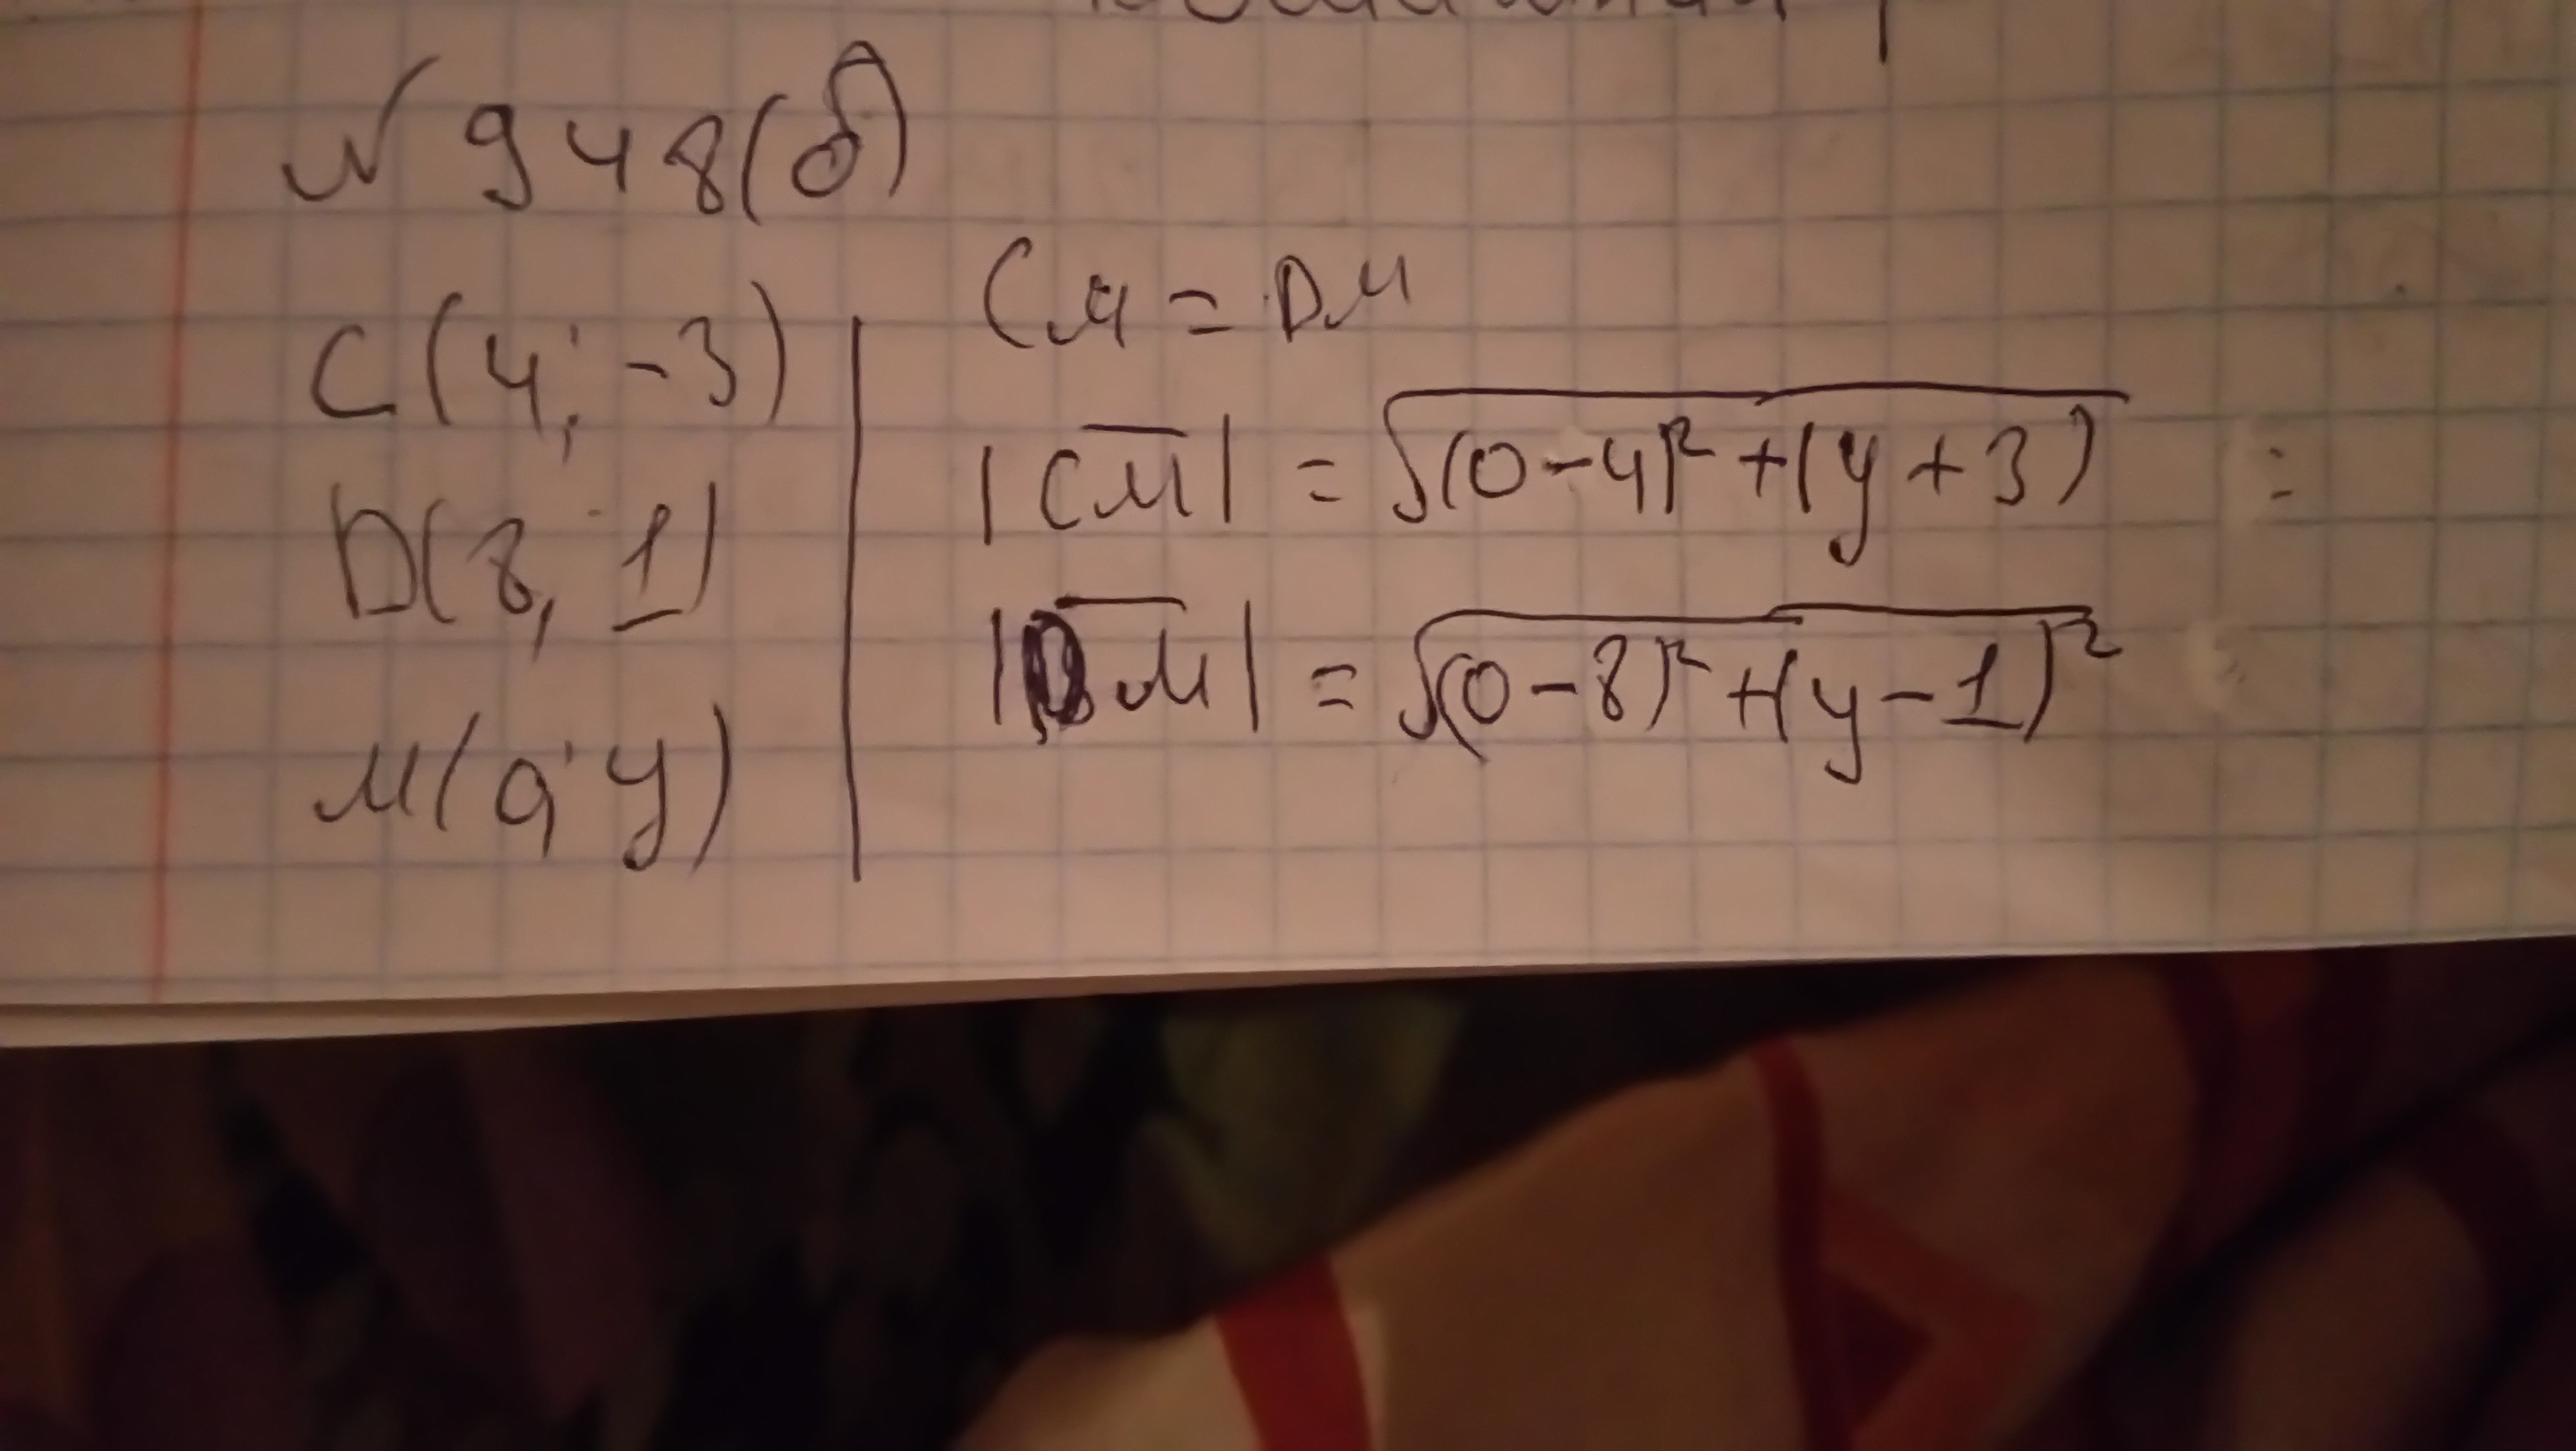 № 948(б)
C(4; -3)
D(8; 1)
M(0; y)
CM = DM
|CM| = √(0-4)² + (y+3) =
|DM| = √(0-8)² + (y-1)²